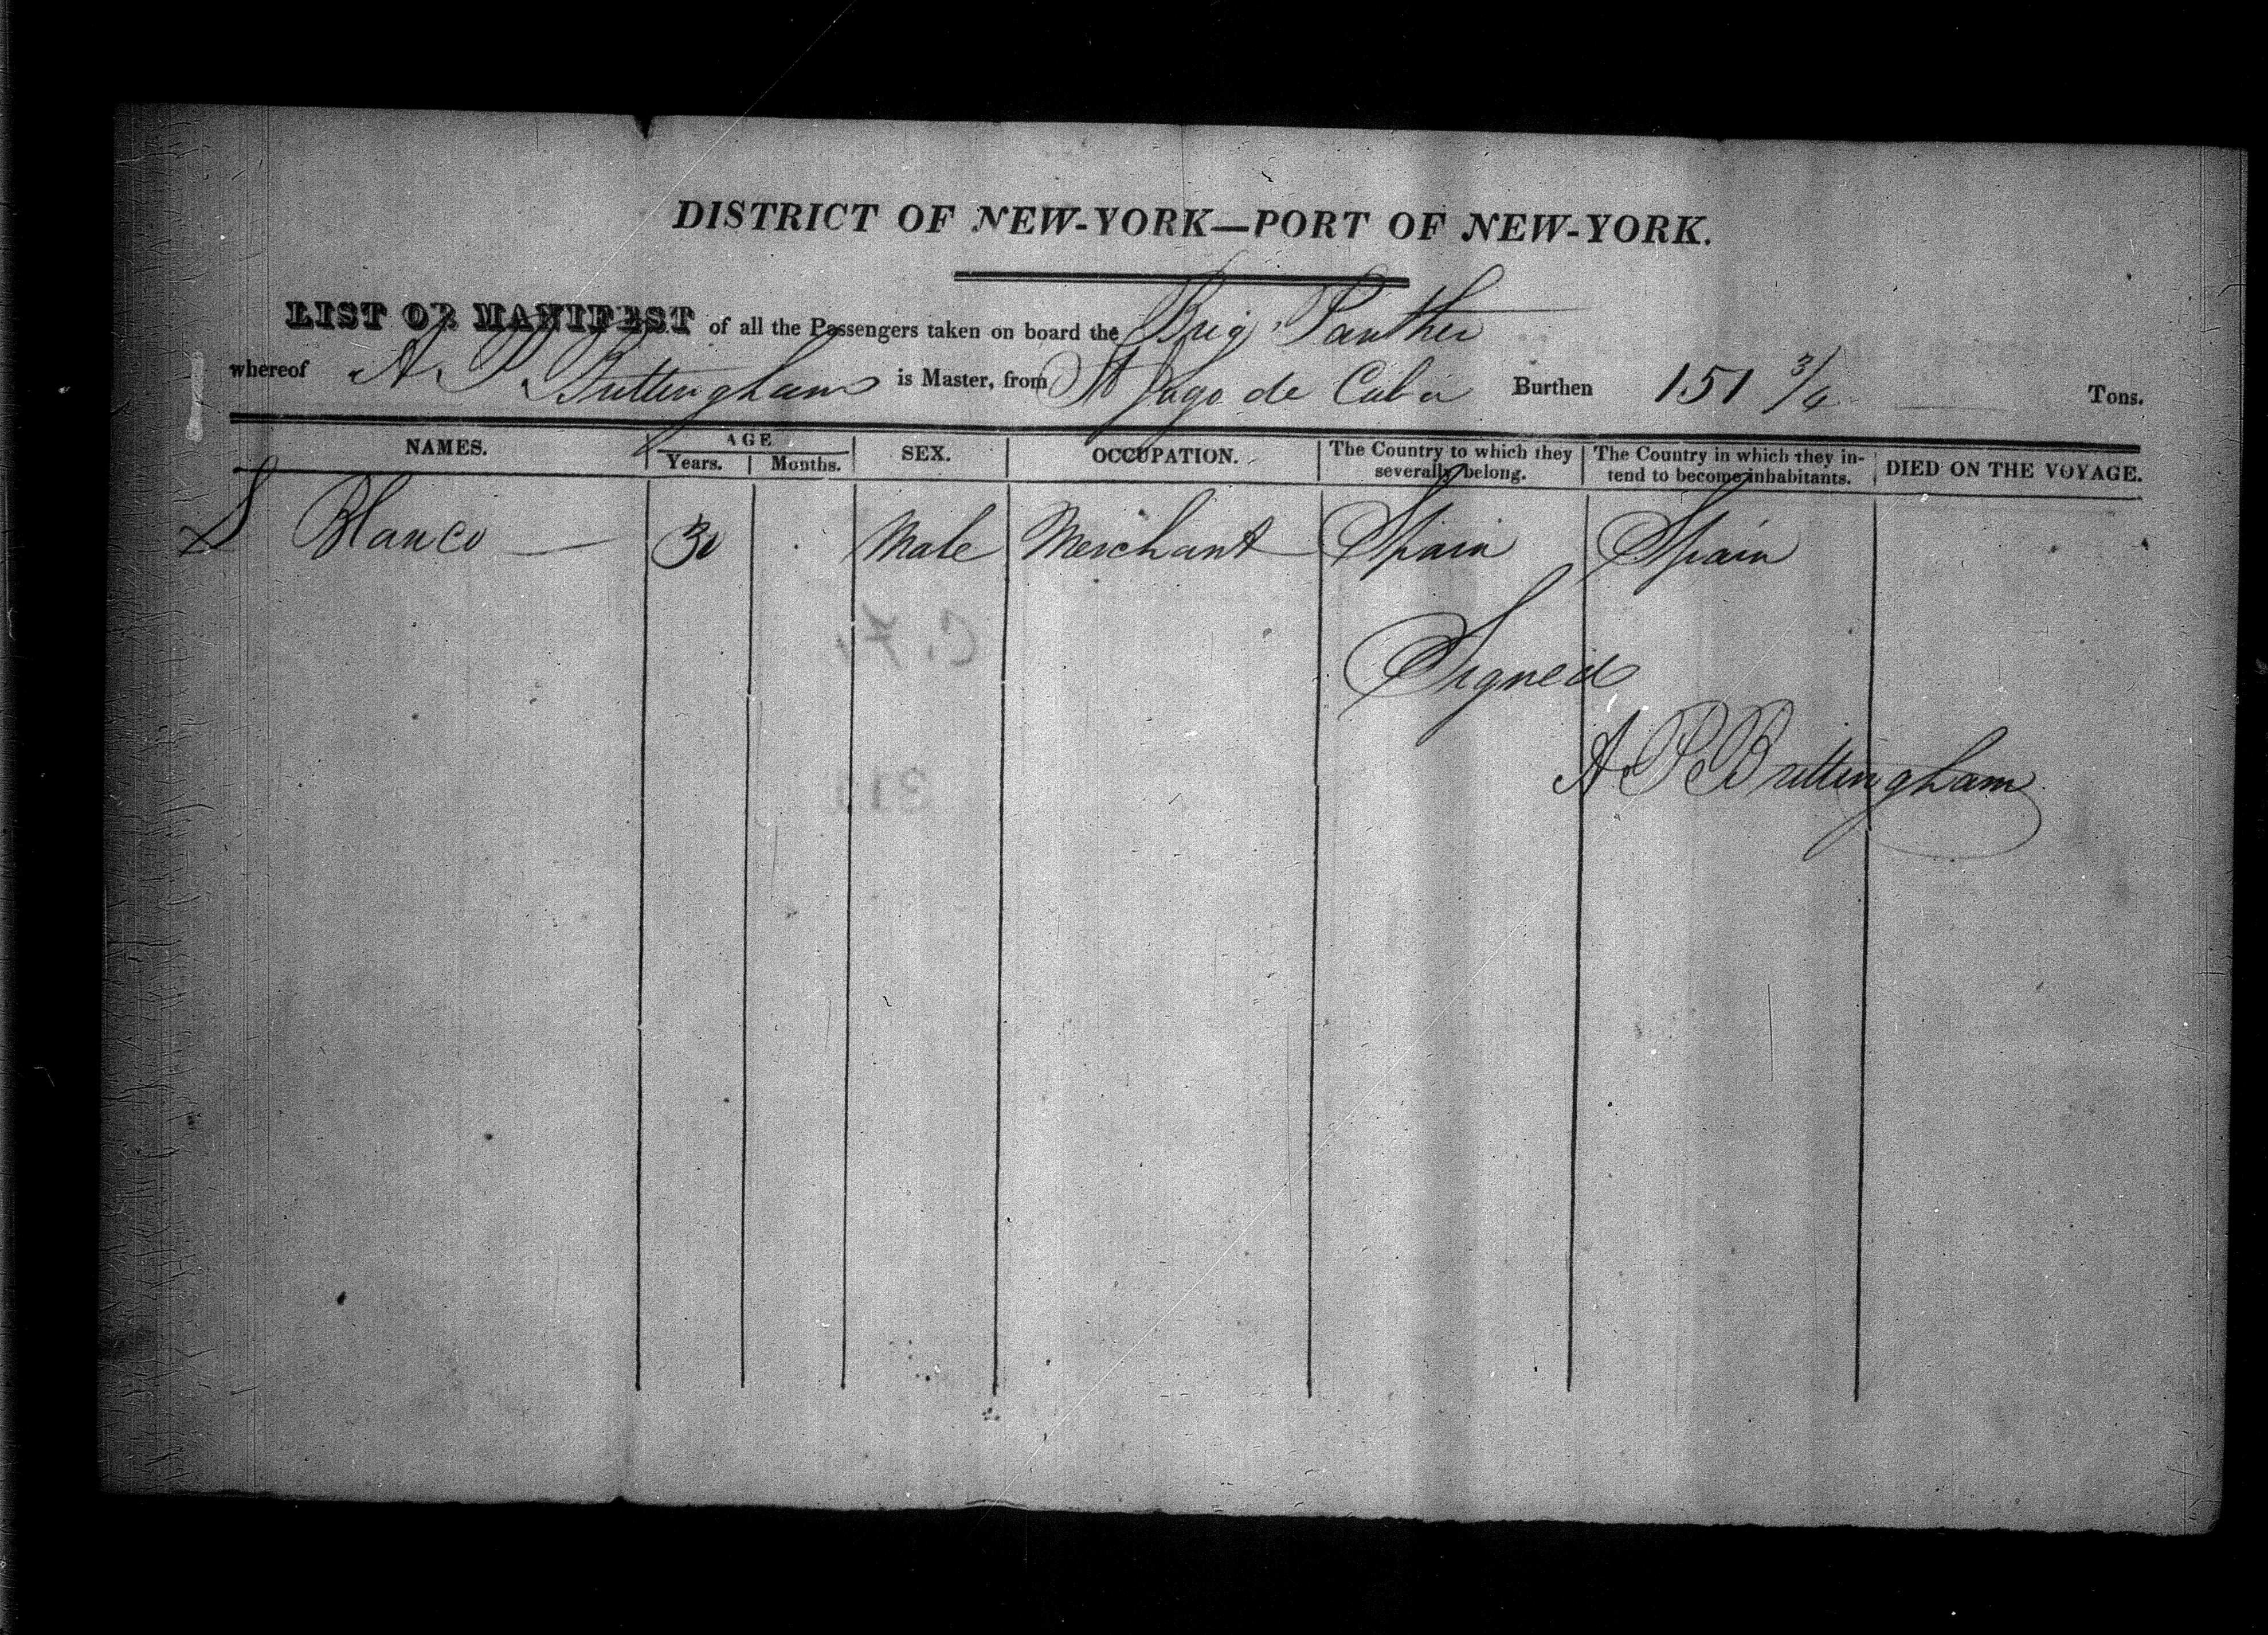 DISTRICT OF NEW-YORK—PORT OF NEW-YORK.
LIST OR MANIFEST of all the Passengers taken on board the Brig Panther
whereof A P Brittingham is Master, from St Jago de Cuba Burthen 151 3/4 Tons.
NAMES. AGE Years. Months. SEX. OCCUPATION. The Country to which they severally belong. The Country in which they intend to become inhabitants. DIED ON THE VOYAGE.
S Blanco 30 Male Merchant Spain Spain
Signed
A P Brittingham